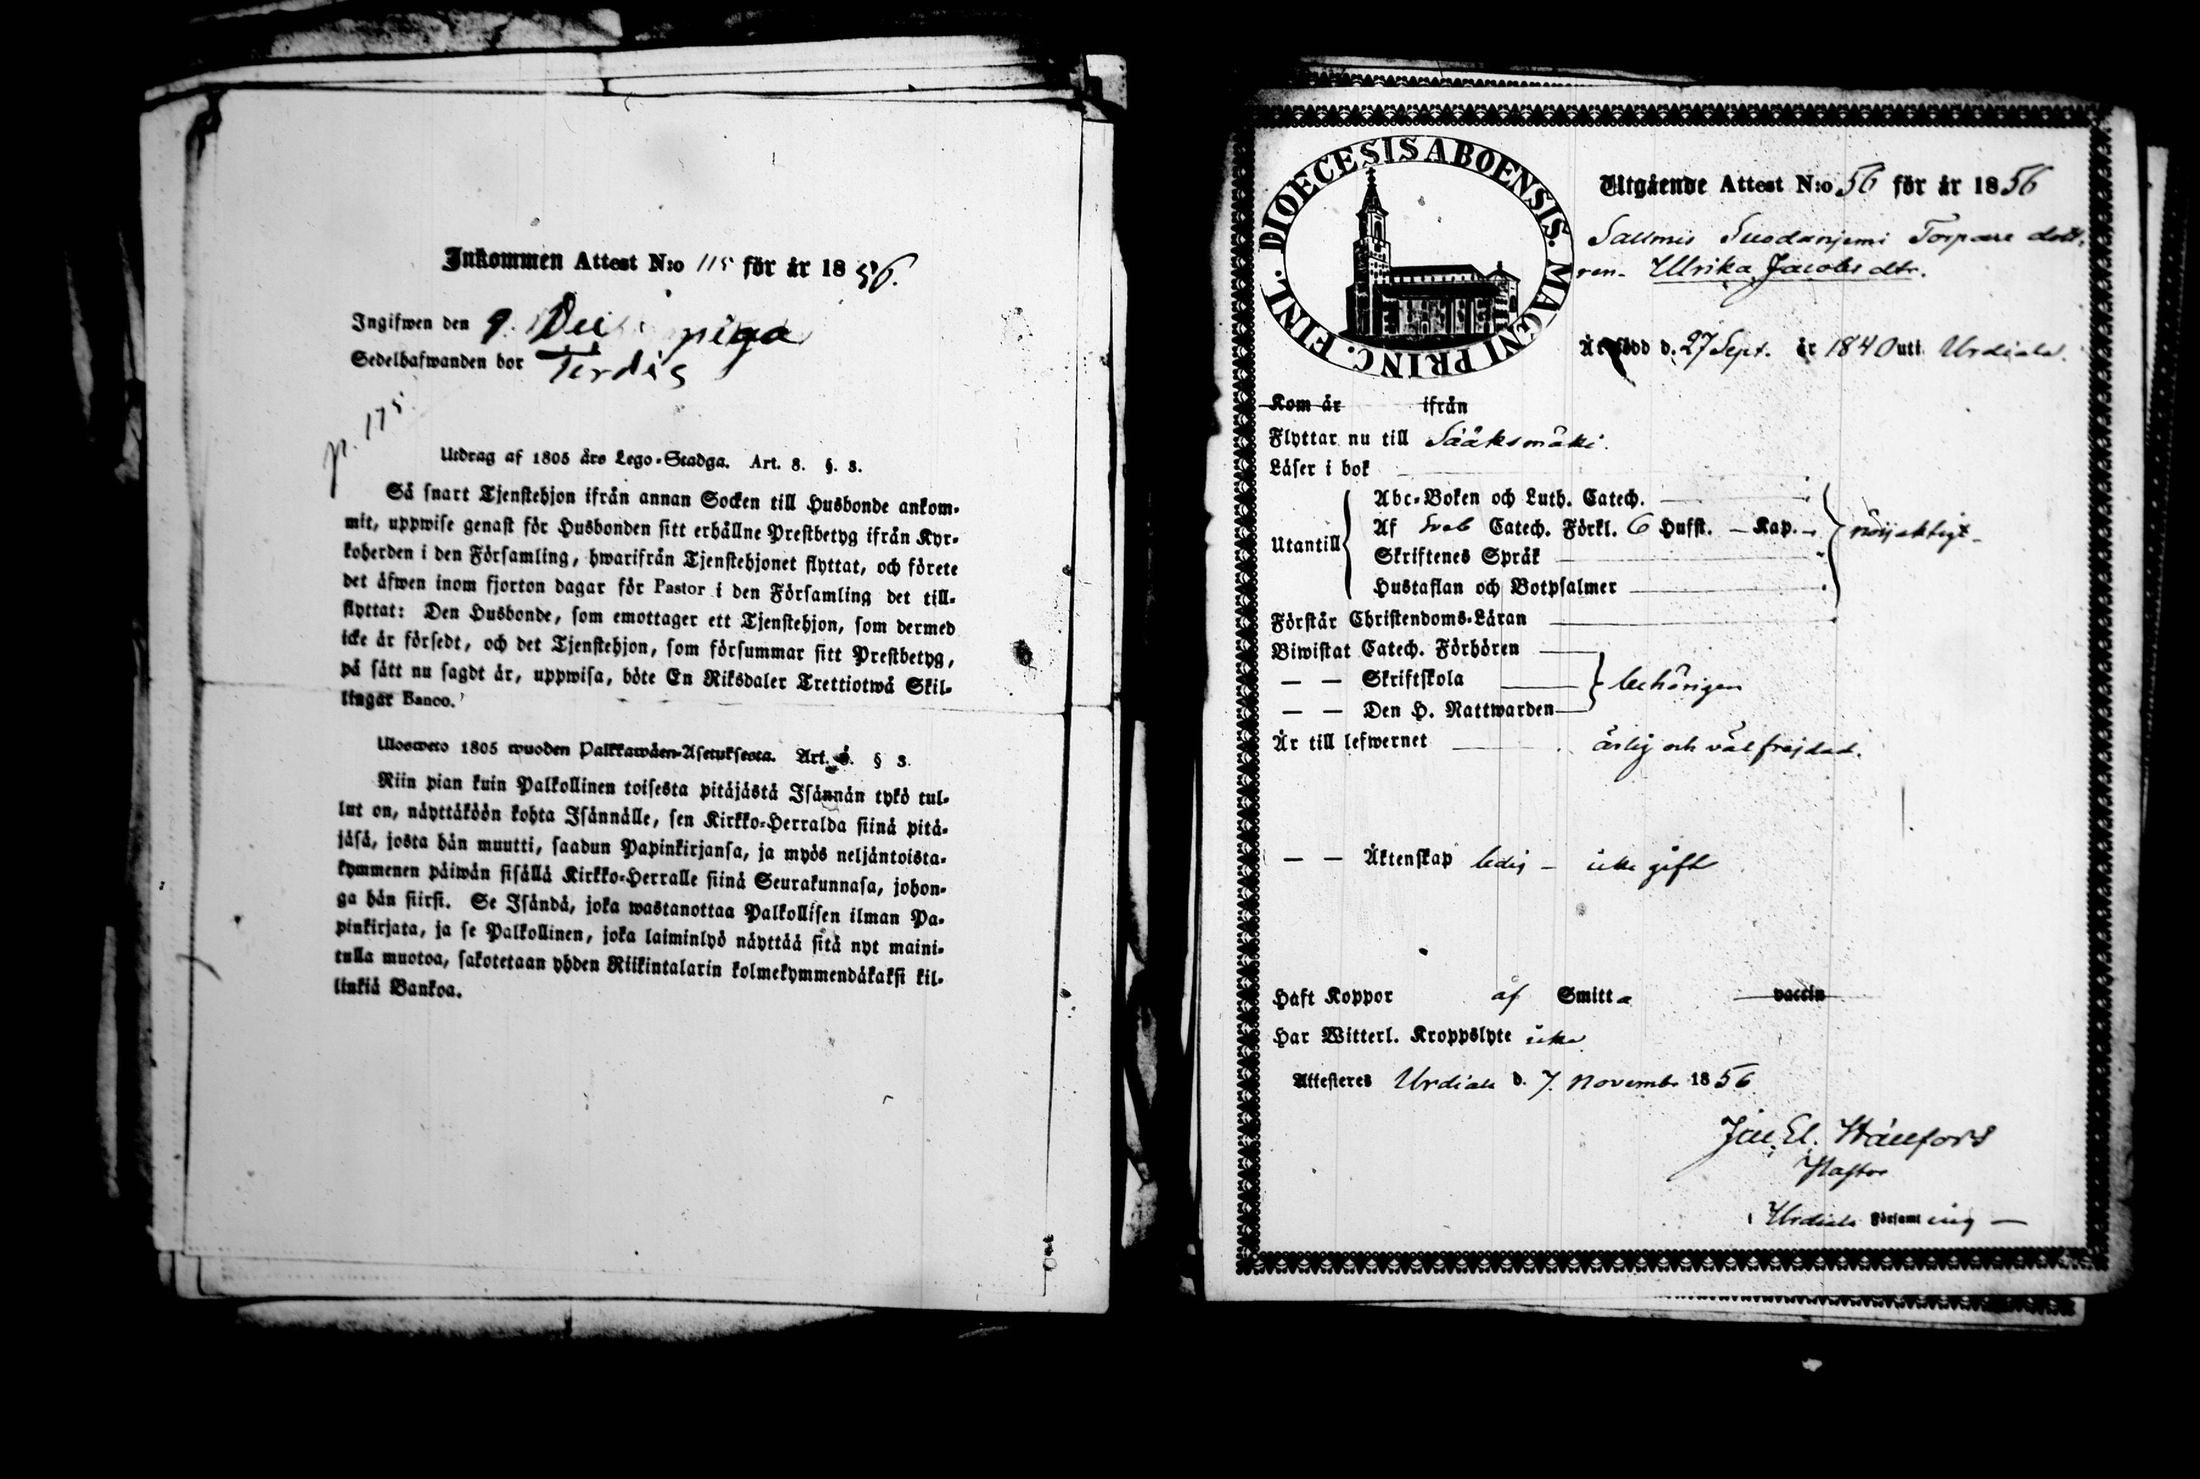 Inkommen Attest N:o 115 för år 1856.
Ingifwen den 9. piga
Sedelhafwanden bor
p. 175.
Utdrag af 1805 års Lego-Stadga. Art. 8. §. 3.
Så snart Tjenstehjon ifrån annan Socken till Husbonde ankom-
mit, uppwise genast för Husbonden sitt erhållne Prestbetyg ifrån Kyr-
koherden i den Församling, hwarifrån Tjenstehjonet flyttat, och förete
det äfwen inom fjorton dagar för Pastor i den Församling det till-
flyttat: Den Husbonde, som emottager ett Tjenstehjon, som dermed
icke är försedt, och det Tjenstehjon, som försummar sitt Prestbetyg,
på sätt nu sagdt är, uppwisa, böte En Riksdaler Trettiotwå Skil-
lingar Banco.
Ulosweto 1805 wuoden Palkkawäen-Asetuksesta. Art. § 3.
Niin pian kuin Palkollinen toisesta pitäjästä Isännän tykö tul-
lut on, näyttäköön kohta Isännälle, sen Kirkko-Herralda siinä pitä-
jäsä, josta hän muutti, saadun Papinkirjansa, ja myös neljäntoista-
kymmenen päiwän sisällä Kirkko-Herralle siinä Seurakunnasa, johon-
ga hän siirsi. Se Isändä, joka wastanottaa Palkollisen ilman Pa-
pinkirjata, ja se Palkollinen, joka laiminlyö näyttää sitä nyt maini-
tulla muotoa, sakotetaan yhden Riikintalarin kolmekymmendäkaksi kil-
linkiä Bankoa.
FINL. DIOECESIS ABOENSIS. MAGNI PRINC.
Utgående Attest N:o 56 för år 1856
Torpare dott.
Ulrika Jacobsdtr.
Är född d. 27 Sept. år 1840 uti Urdiala.
Kom år ifrån
Flyttar nu till Sääksmäki.
Läser i bok
Utantill
Abc-Boken och Luth. Catech.
Af Sveb Catech. Förkl. 6 Hufst. Kap.
nöjaktigt
Skriftenes Språk
Hustaflan och Botpsalmer
Förstår Christendoms-Läran
Biwistat Catech. Förhören
— — Skriftskola
behörigen
— — Den H. Nattwarden
Är till lefwernet ärlig och välfrejdad.
— — Äktenskap ledig – icke gift
Haft Koppor af Smitta vaccin
Har Witterl. Kroppslyte icke
Attesteres Urdiala d. 7. November 1856
Pastor
i Urdiala Församling